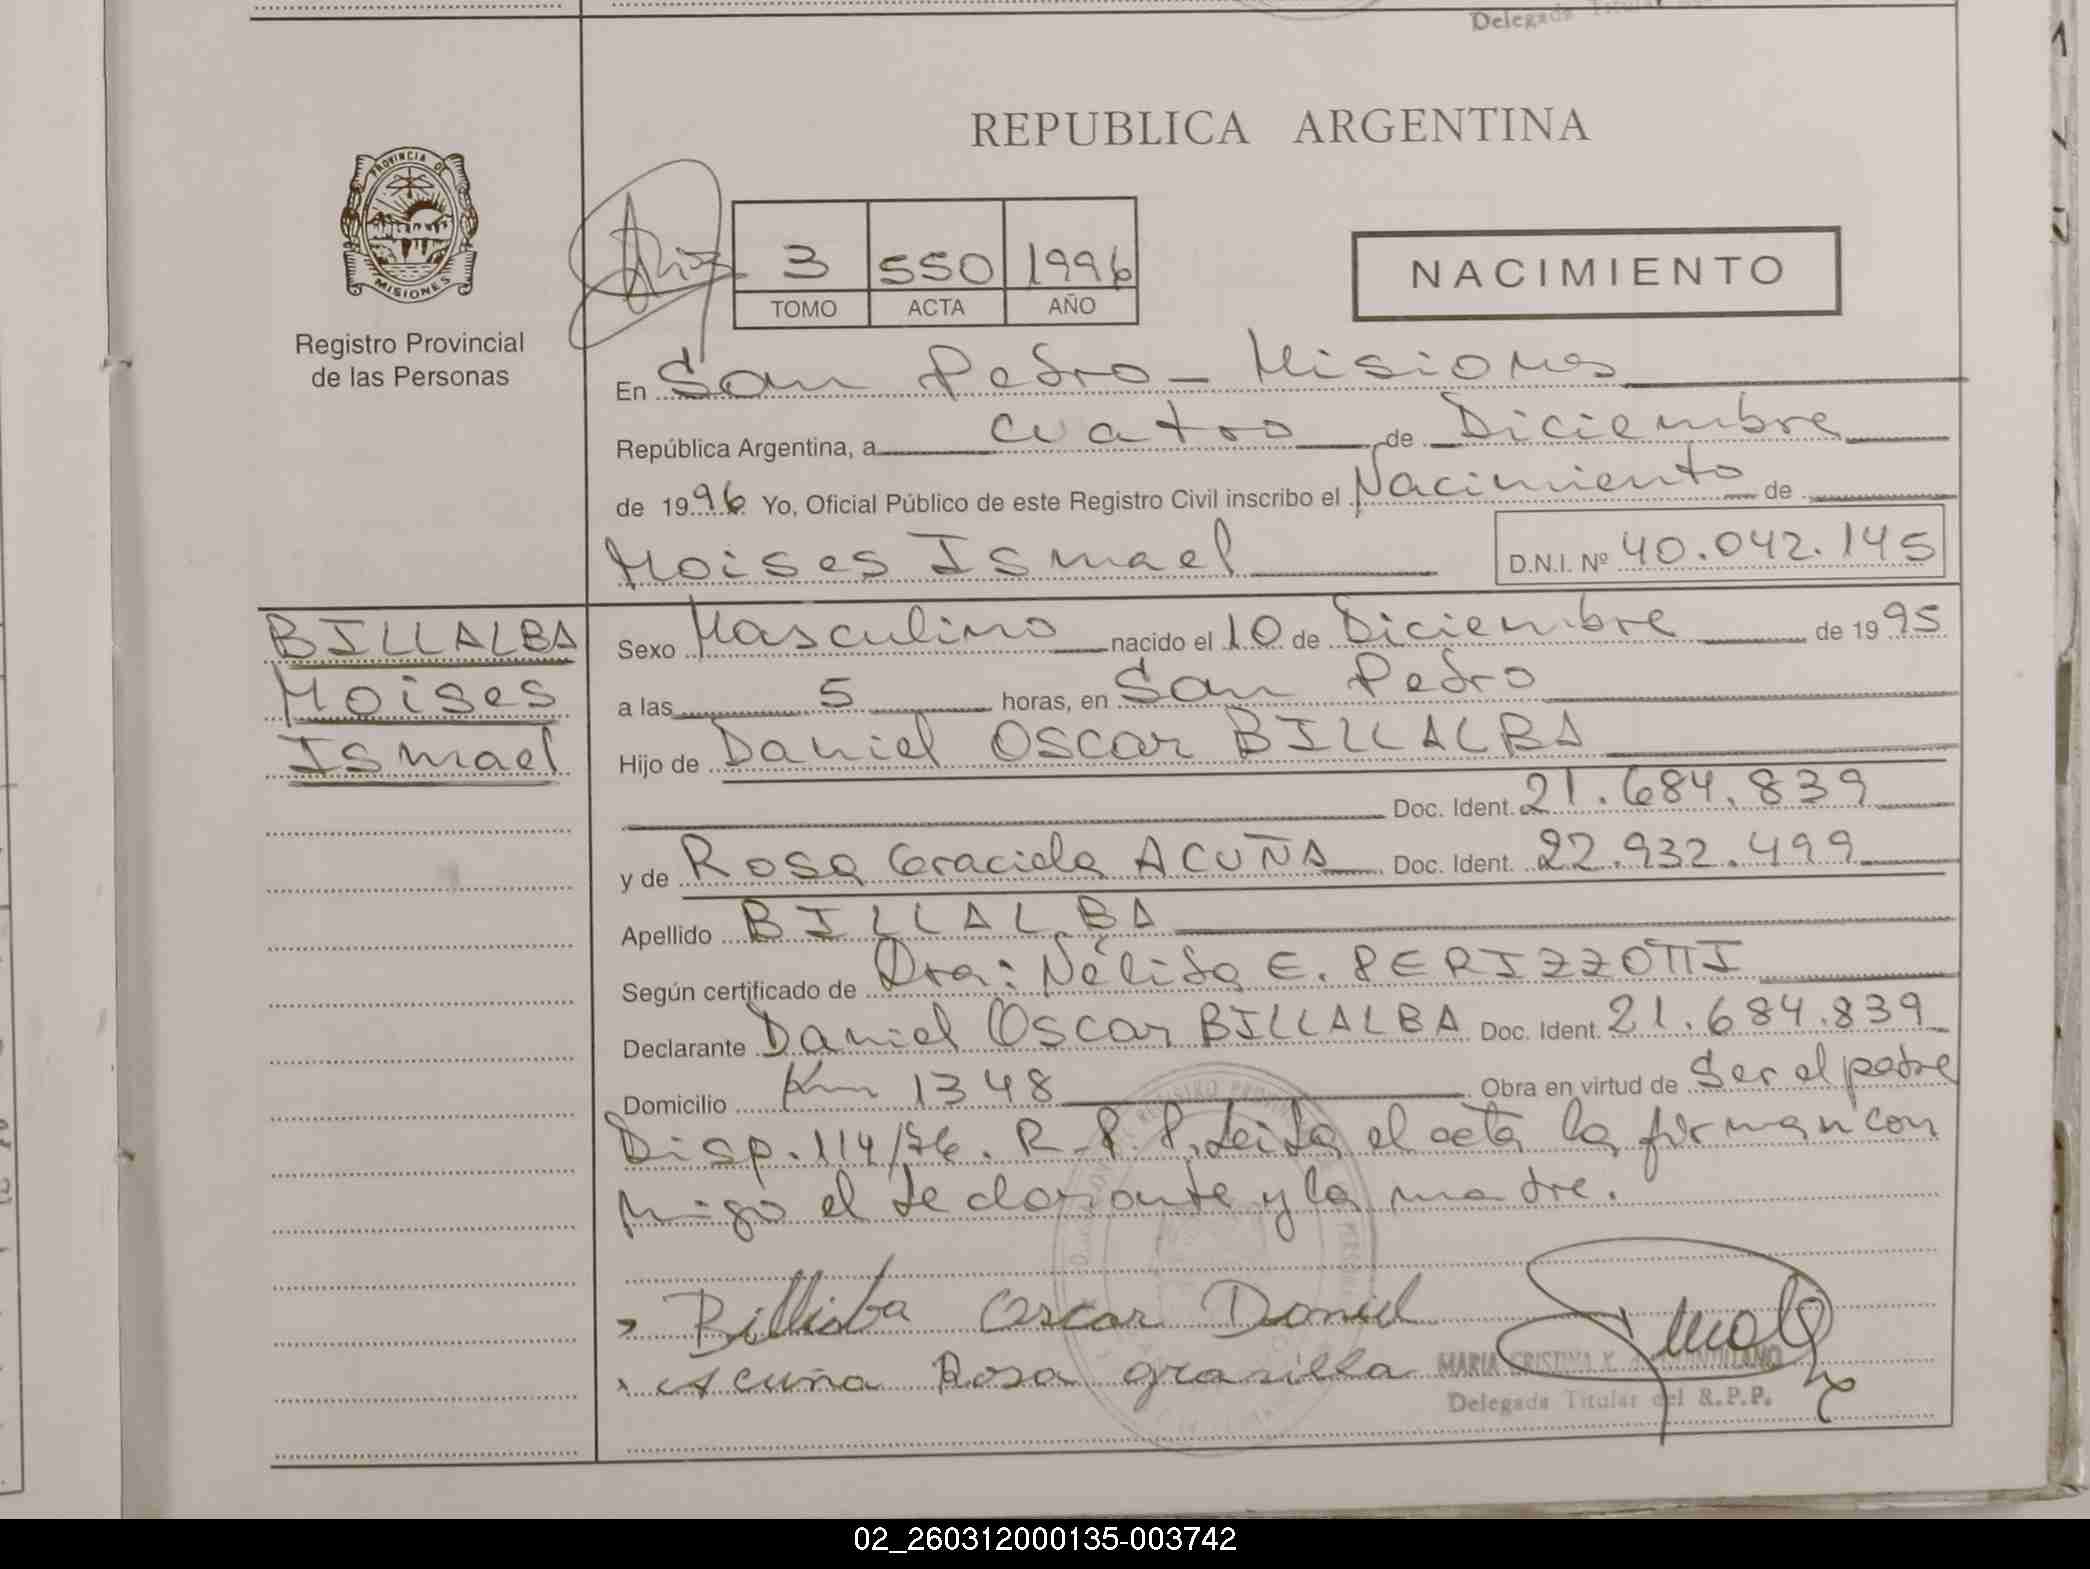 Delegada Titular
REPUBLICA ARGENTINA
PROVINCIA DE
MISIONES
Registro Provincial
de las Personas
3 550 1996
TOMO ACTA AÑO
NACIMIENTO
En San Pedro - Misiones
República Argentina, a cuatro de Diciembre
de 1996 Yo, Oficial Público de este Registro Civil inscribo el Nacimiento de
Moises Ismael D.N.I. Nº 40.042.145
BILLALBA
Moises
Ismael
Sexo Masculino nacido el 10 de Diciembre de 1995
a las 5 horas, en San Pedro
Hijo de Daniel Oscar BILLALBA
Doc. Ident. 21.684.839
y de Rosa Graciela ACUÑA Doc. Ident. 22.932.499
Apellido BILLALBA
Según certificado de Dra: Nélida E. PERIZZOTTI
Declarante Daniel Oscar BILLALBA Doc. Ident. 21.684.839
Domicilio Km 1348 Obra en virtud de Ser el padre
Disp. 114/76. R.P.P. Leida el acta la firman con
migo el declarante y la madre.
Billalba Oscar Daniel
Acuña Rosa grasiela
MARIA CRISTINA K.
Delegada Titular del R.P.P.
02_260312000135-003742